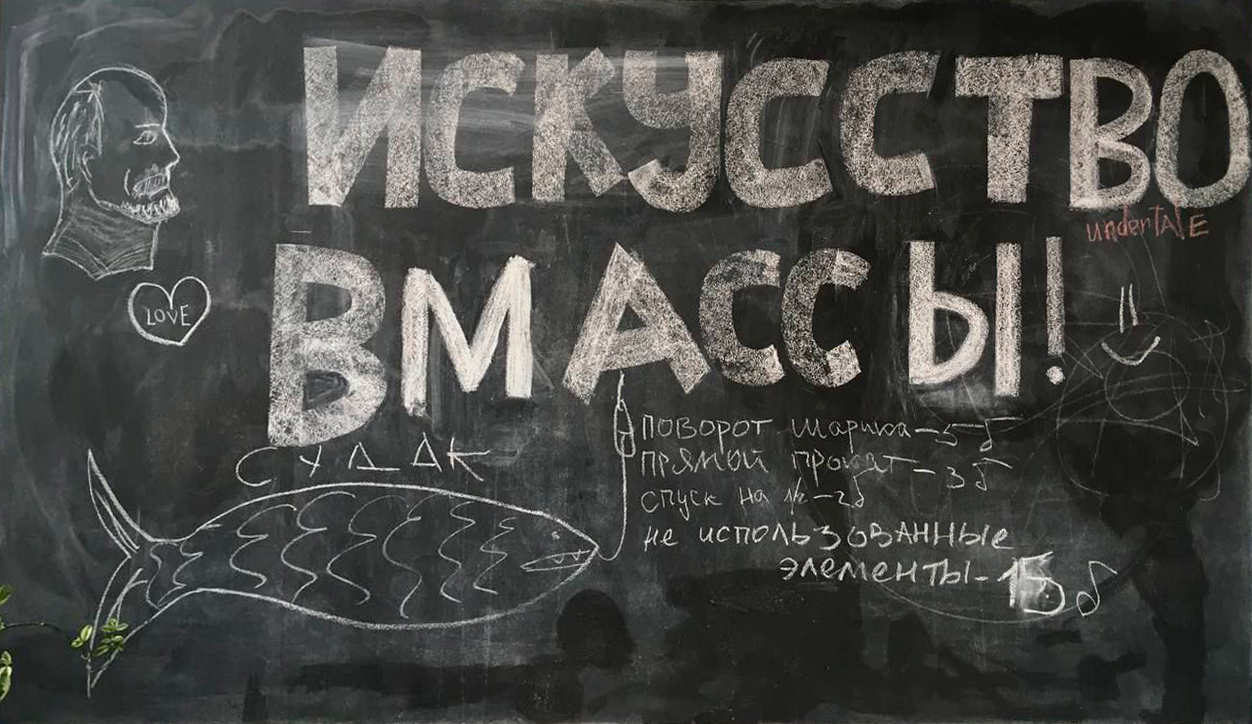 ИСКУССТВО
undertalE
В МАССЫ!
LOVE
СУДАК
поворот шарика - 5 б
прямой прокат - 3 б
спуск на - 2б
не использованные
элементы - 15 б